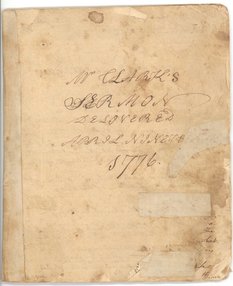 Mr CLARK'S
SERMON
DELOVERED
APRIL NINETH
1776.